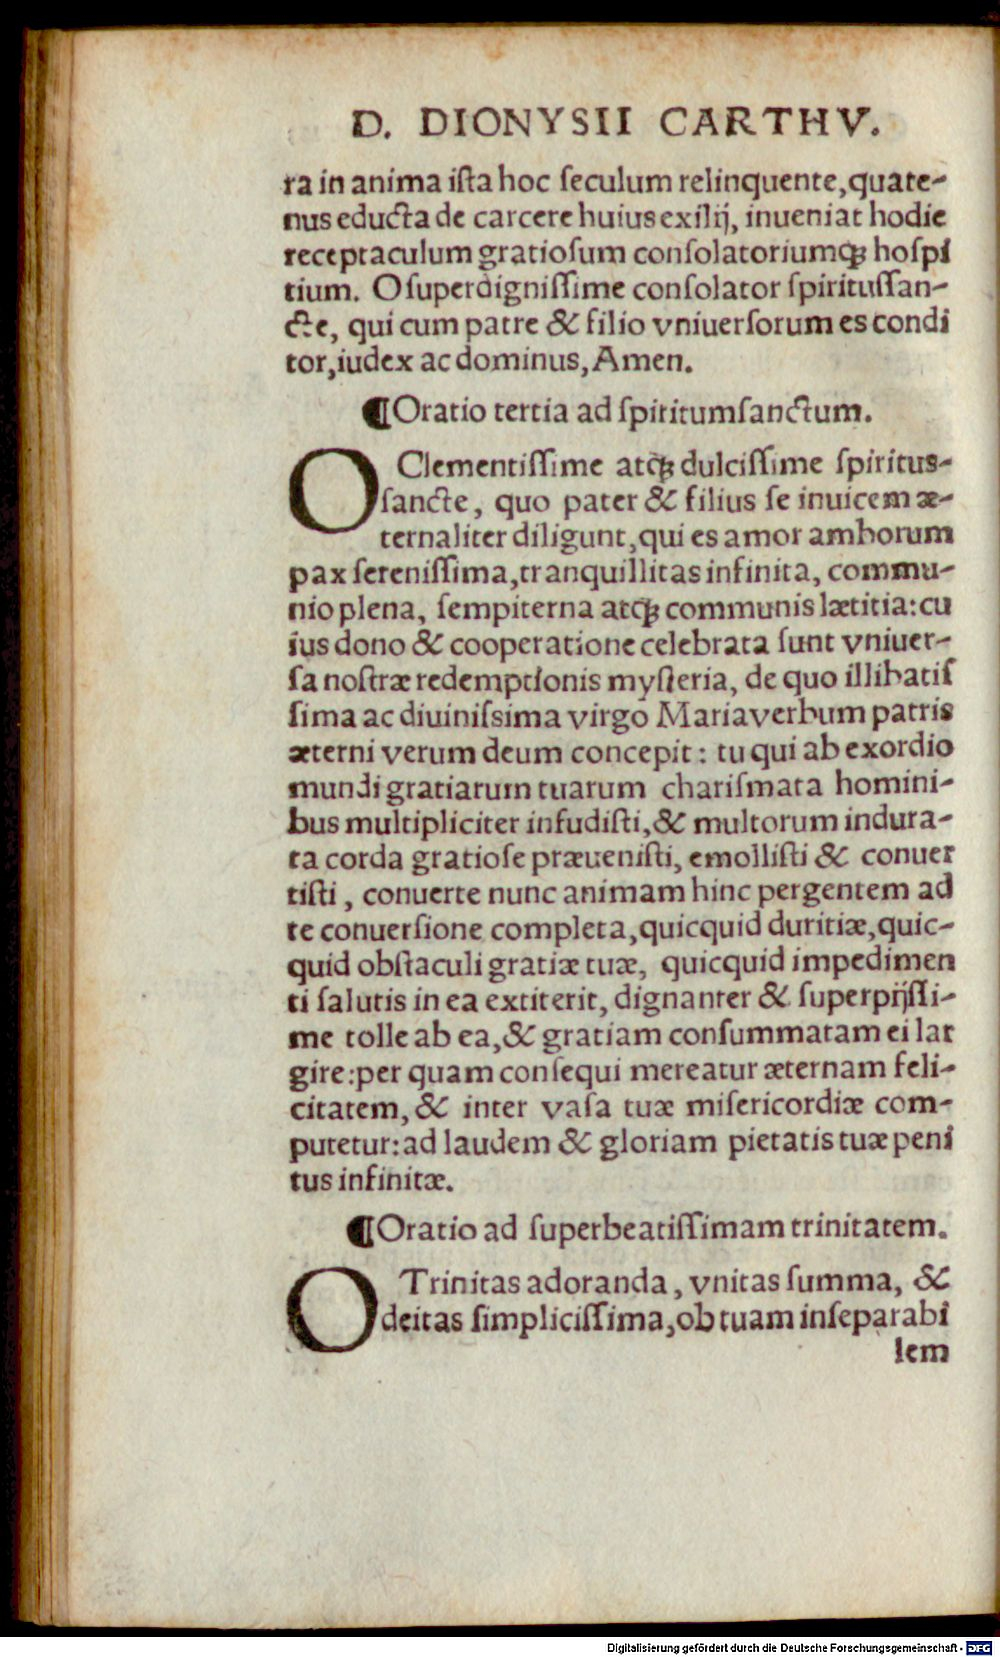 D. DIONYSII CARTHV.
ra in anima iſta hoc ſeculum relinquente, quate-
nus educta de carcere huius exilij, inueniat hodie
receptaculum gratioſum conſolatoriumq́ꝫ hoſpi
tium. O ſuperdigniſſime conſolator ſpirituſſan-
cte, qui cum patre & filio vniuerſorum es condi
tor, iudex ac dominus, Amen.
¶Oratio tertia ad ſpiritumſanctum.
O Clementiſſime atqꝫ dulciſſime ſpiritus-
ſancte, quo pater & filius ſe inuicem æ-
ternaliter diligunt, qui es amor amborum
pax ſereniſſima, tranquillitas infinita, commu-
nio plena, ſempiterna atqꝫ communis lætitia: cu
ius dono & cooperatione celebrata ſunt vniuer-
ſa noſtræ redemptionis myſteria, de quo illibatiſ
ſima ac diuiniſsima virgo Maria verbum patris
æterni verum deum concepit: tu qui ab exordio
mundi gratiarum tuarum chariſmata homini-
bus multipliciter infudiſti, & multorum indura-
ta corda gratioſe præueniſti, emolliſti & conuer
tiſti, conuerte nunc animam hinc pergentem ad
te conuerſione completa, quicquid duritiæ, quic-
quid obſtaculi gratiæ tuæ, quicquid impedimen
ti ſalutis in ea extiterit, dignanter & ſuperpijſſi-
me tolle ab ea, & gratiam conſummatam ei lar
gire: per quam conſequi mereatur æternam feli-
citatem, & inter vaſa tuæ miſericordiæ com-
putetur: ad laudem & gloriam pietatis tuæ peni
tus infinitæ.
¶Oratio ad ſuperbeatiſſimam trinitatem.
O Trinitas adoranda, vnitas ſumma, &
deitas ſimpliciſſima, ob tuam inſeparabi
lem
Digitalisierung gefördert durch die Deutsche Forschungsgemeinschaft - DFG